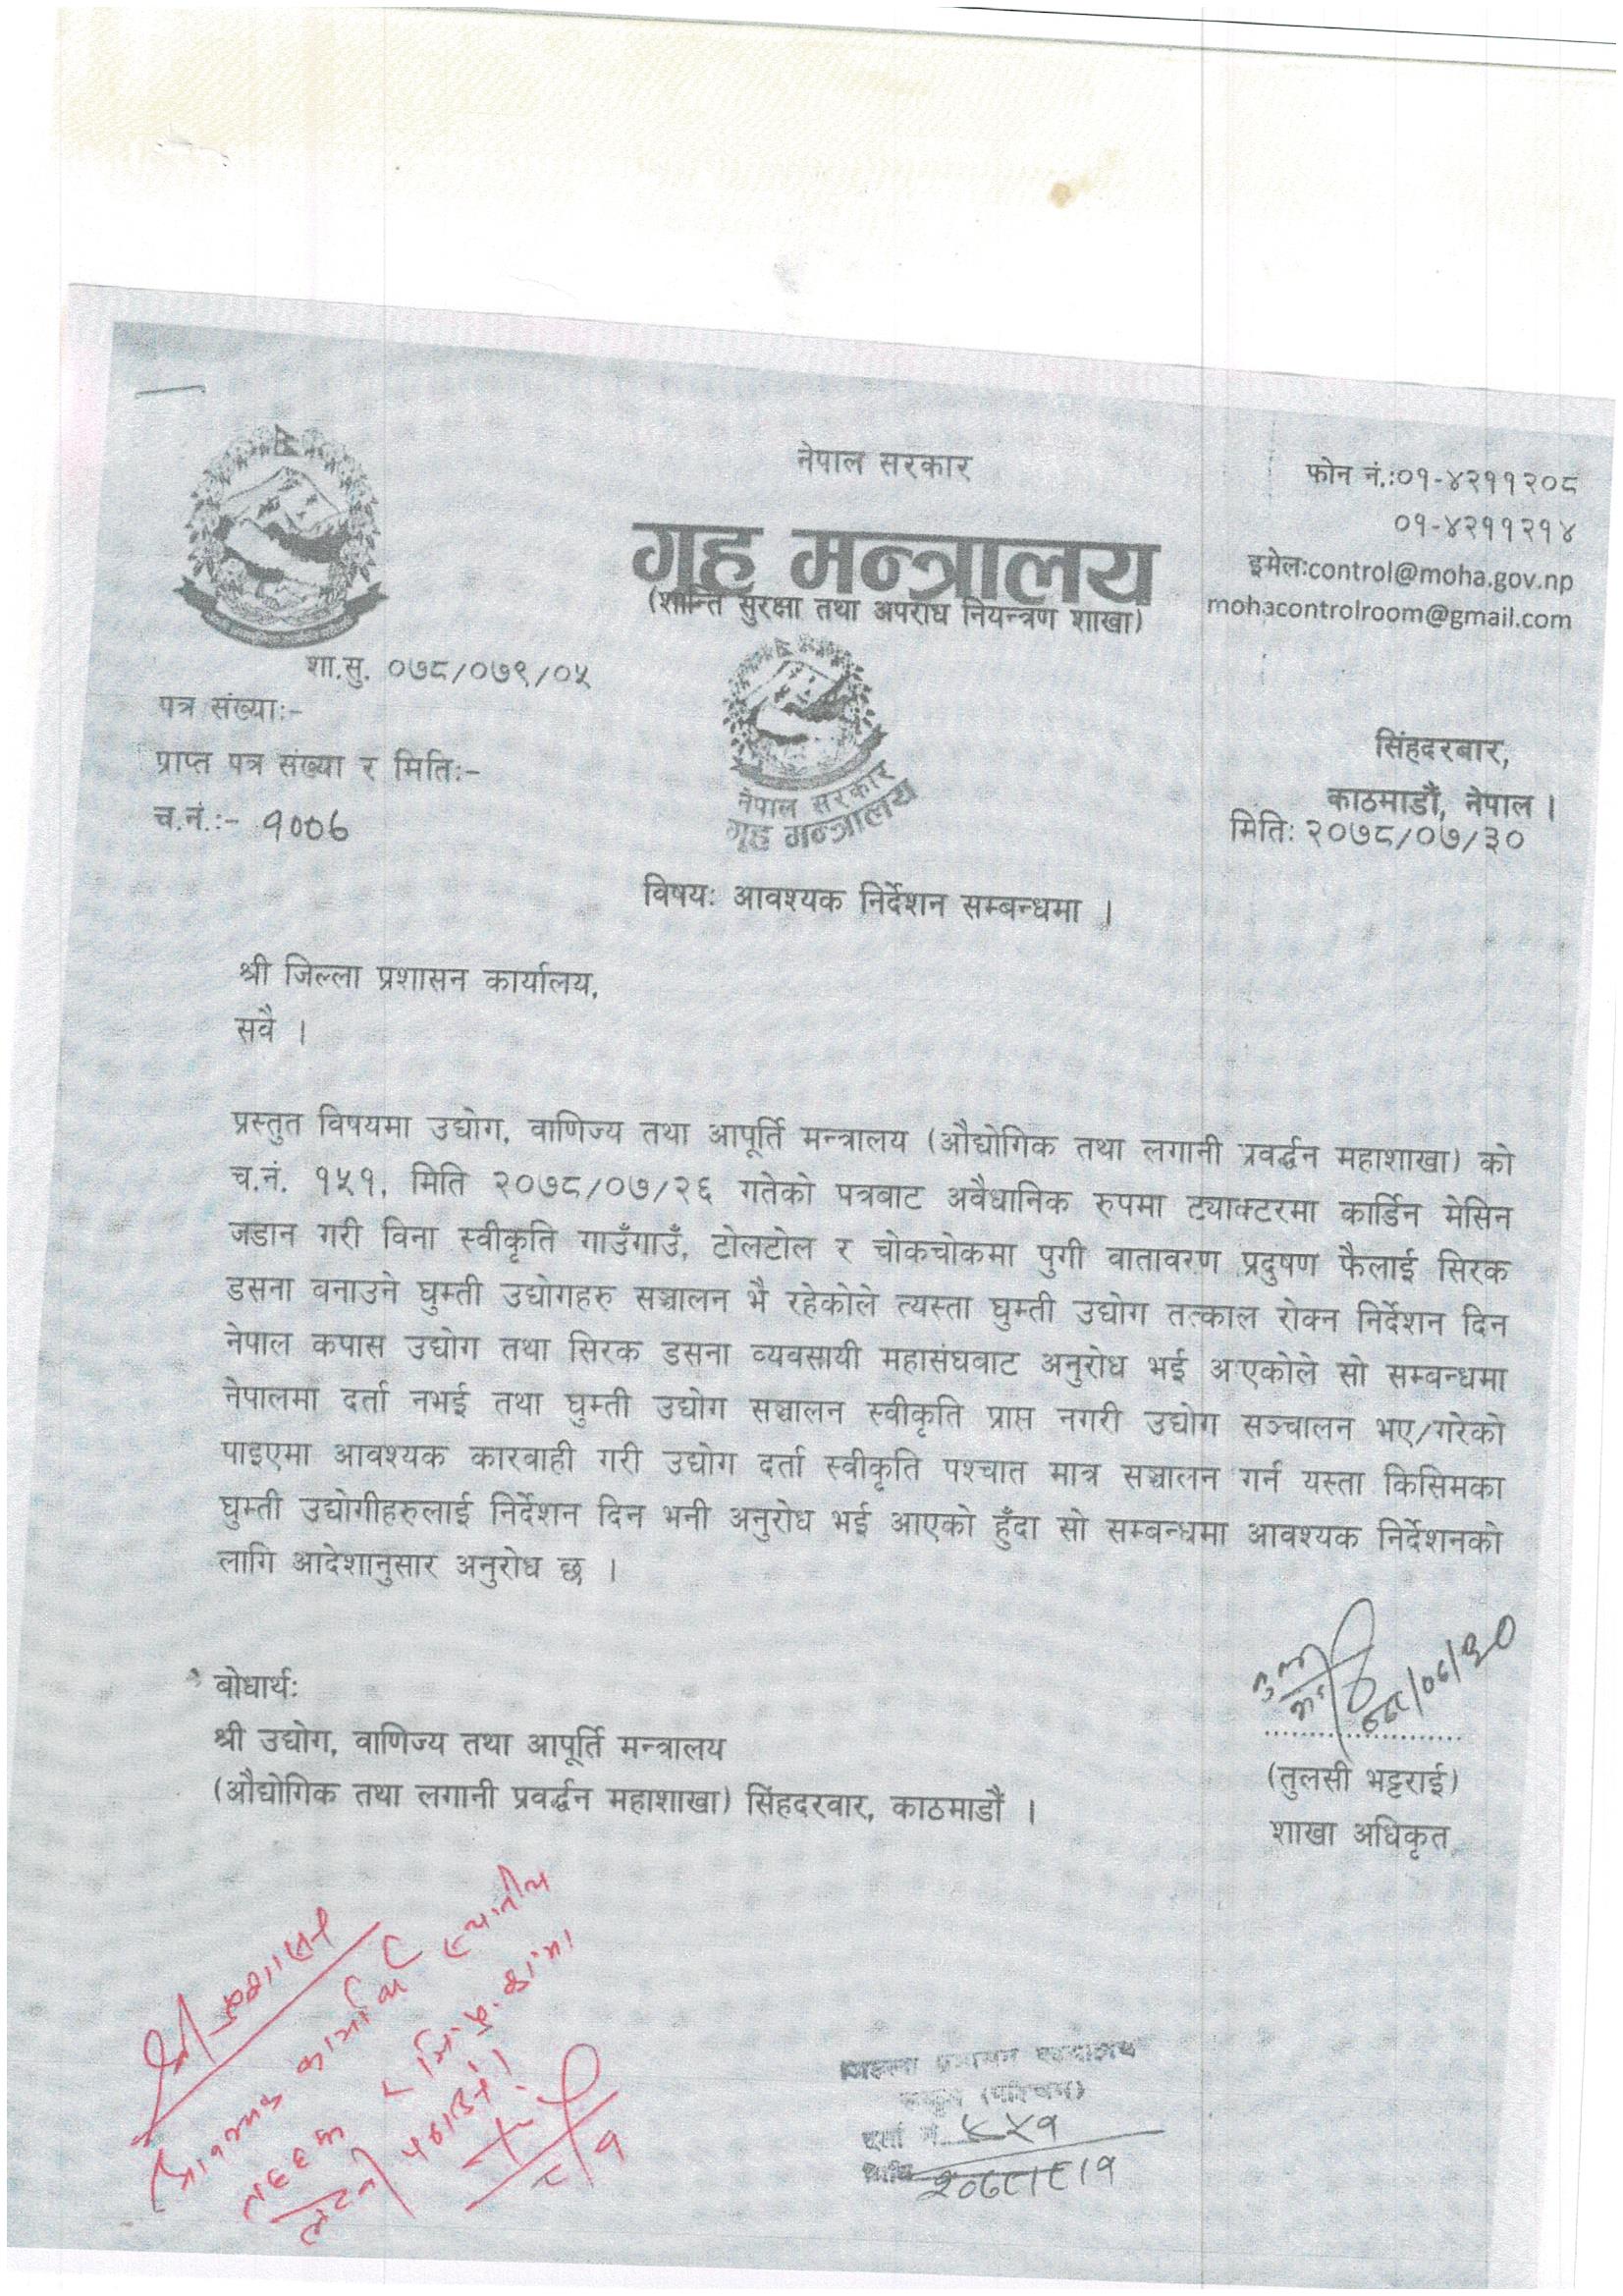 नेपाल सरकार
गृह मन्त्रालय
(शान्ति सुरक्षा तथा अपराध नियन्त्रण शाखा)
फोन नं.:०१-४२११२०८
०१-४२११२१४
इमेल:control@moha.gov.np
mohacontrolroom@gmail.com
शा.सु. ०७८/०७९/०५
पत्र संख्या:-
प्राप्त पत्र संख्या र मिति:-
च.नं.:- १००६
नेपाल सरकार
गृह मन्त्रालय
सिंहदरबार,
काठमाडौं, नेपाल ।
मिति: २०७८/०७/३०
विषय: आवश्यक निर्देशन सम्बन्धमा ।
श्री जिल्ला प्रशासन कार्यालय,
सवै ।
प्रस्तुत विषयमा उद्योग, वाणिज्य तथा आपूर्ति मन्त्रालय (औद्योगिक तथा लगानी प्रवर्द्धन महाशाखा) को
च.नं. १५१, मिति २०७८/०७/२६ गतेको पत्रबाट अवैधानिक रुपमा ट्याक्टरमा कार्डिन मेसिन
जडान गरी विना स्वीकृति गाउँगाउँ, टोलटोल र चोकचोकमा पुगी वातावरण प्रदुषण फैलाई सिरक
डसना बनाउने घुम्ती उद्योगहरु सञ्चालन भै रहेकोले त्यस्ता घुम्ती उद्योग तत्काल रोक्न निर्देशन दिन
नेपाल कपास उद्योग तथा सिरक डसना व्यवसायी महासंघवाट अनुरोध भई आएकोले सो सम्बन्धमा
नेपालमा दर्ता नभई तथा घुम्ती उद्योग सञ्चालन स्वीकृति प्राप्त नगरी उद्योग सञ्चालन भए/गरेको
पाइएमा आवश्यक कारवाही गरी उद्योग दर्ता स्वीकृति पश्चात मात्र सञ्चालन गर्न यस्ता किसिमका
घुम्ती उद्योगीहरुलाई निर्देशन दिन भनी अनुरोध भई आएको हुँदा सो सम्बन्धमा आवश्यक निर्देशनको
लागि आदेशानुसार अनुरोध छ ।
(तुलसी भट्टराई)
शाखा अधिकृत
बोधार्थ:
श्री उद्योग, वाणिज्य तथा आपूर्ति मन्त्रालय
(औद्योगिक तथा लगानी प्रवर्द्धन महाशाखा) सिंहदरवार, काठमाडौं ।
श्री प्रशासन
जिल्ला प्रशासन कार्यालय
रुकुम (पश्चिम)
दर्ता नं. ८५१
मिति २०७८।८।१